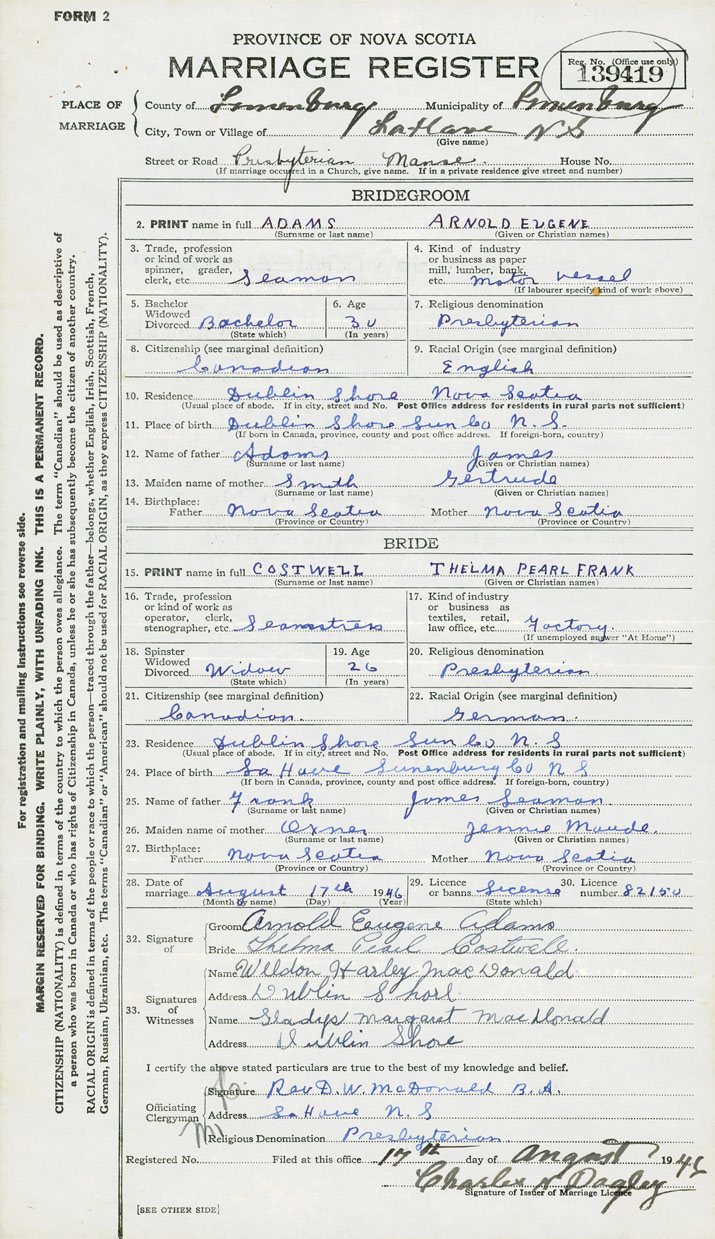 FORM 2
PROVINCE OF NOVA SCOTIA
MARRIAGE REGISTER
Reg. No. (Office use only)
139419
PLACE OF MARRIAGE
County of Lunenburg Municipality of Lunenburg
City, Town or Village of LaHave N S
(Give name)
Street or Road Presbyterian Manse. House No.
(If marriage occurred in a Church, give name. If in a private residence give street and number)
BRIDEGROOM
2. PRINT name in full ADAMS ARNOLD EUGENE
(Surname or last name) (Given or Christian names)
3. Trade, profession or kind of work as spinner, grader, clerk, etc. Seaman
4. Kind of industry or business as paper mill, lumber, bank, etc. motor vessel
(If labourer specify kind of work above)
5. Bachelor Widowed Divorced Bachelor
(State which)
6. Age 30
(In years)
7. Religious denomination
Presbyterian
8. Citizenship (see marginal definition)
Canadian
9. Racial Origin (see marginal definition)
English
10. Residence Dublin Shore Nova Scotia
(Usual place of abode. If in city, street and No. Post Office address for residents in rural parts not sufficient)
11. Place of birth Dublin Shore Lun Co N. S.
(If born in Canada, province, county and post office address. If foreign-born, country)
12. Name of father Adams James
(Surname or last name) (Given or Christian names)
13. Maiden name of mother Smith Gertrude
(Surname or last name) (Given or Christian names)
14. Birthplace:
Father Nova Scotia Mother Nova Scotia
(Province or Country) (Province or Country)
BRIDE
15. PRINT name in full COSTWELL THELMA PEARL FRANK
(Surname or last name) (Given or Christian names)
16. Trade, profession or kind of work as operator, clerk, stenographer, etc. Seamstress
17. Kind of industry or business as textiles, retail, law office, etc. Factory.
(If unemployed answer "At Home")
18. Spinster Widowed Divorced Widow
(State which)
19. Age 26
(In years)
20. Religious denomination
Presbyterian
21. Citizenship (see marginal definition)
Canadian.
22. Racial Origin (see marginal definition)
German.
23. Residence Dublin Shore Lun Co N. S
(Usual place of abode. If in city, street and No. Post Office address for residents in rural parts not sufficient)
24. Place of birth La Have Lunenburg Co N S
(If born in Canada, province, county and post office address. If foreign-born, country)
25. Name of father Frank James Seaman
(Surname or last name) (Given or Christian names)
26. Maiden name of mother Oxner Jennie Maude.
(Surname or last name) (Given or Christian names)
27. Birthplace:
Father Nova Scotia Mother Nova Scotia
(Province or Country) (Province or Country)
28. Date of marriage August 17th 1946
(Month by name) (Day) (Year)
29. Licence or banns License
(State which)
30. Licence number 82150
32. Signature of
Groom Arnold Eugene Adams
Bride Thelma Pearl Costwell.
33. Signatures of Witnesses
Name Weldon Harley MacDonald
Address Dublin Shore
Name Gladys Margaret MacDonald
Address Dublin Shore
I certify the above stated particulars are true to the best of my knowledge and belief.
Officiating Clergyman
Signature Rev D. W. McDonald B. A.
Address La Have N. S
Religious Denomination Presbyterian
Registered No. Filed at this office 17th day of August 1946
Charles Dagley
Signature of Issuer of Marriage Licence
[SEE OTHER SIDE]
For registration and mailing instructions see reverse side.
MARGIN RESERVED FOR BINDING. WRITE PLAINLY, WITH UNFADING INK. THIS IS A PERMANENT RECORD.
CITIZENSHIP (NATIONALITY) is defined in terms of the country to which the person owes allegiance. The term "Canadian" should be used as descriptive of
a person who was born in Canada or who has rights of Citizenship in Canada, unless he or she has subsequently become the citizen of another country.
RACIAL ORIGIN is defined in terms of the people or race to which the person—traced through the father—belongs, whether English, Irish, Scottish, French,
German, Russian, Ukrainian, etc. The terms "Canadian" or "American" should not be used for RACIAL ORIGIN, as they express CITIZENSHIP (NATIONALITY).